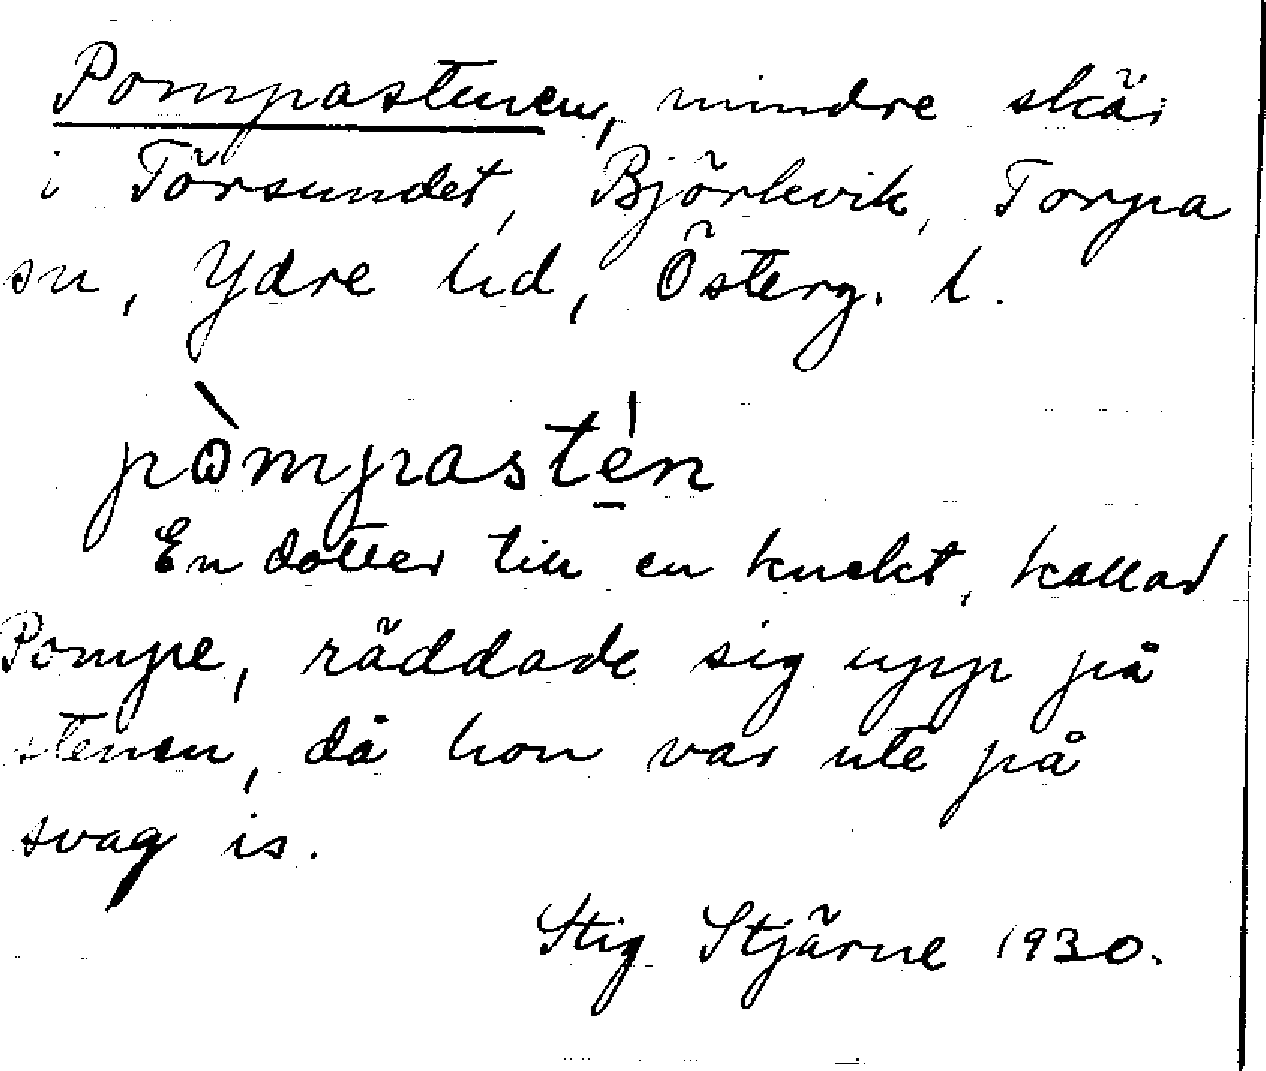 Pompastenen, mindre skär
i Törsundet, Björkvik, Torpa
sn, Ydre hd, Österg. l.
pòmpasté̱n
En dotter till en knekt, kallad
Pompe, räddade sig upp på
stenen, då hon var ute på
svag is.
Stig Stjärne 1930.